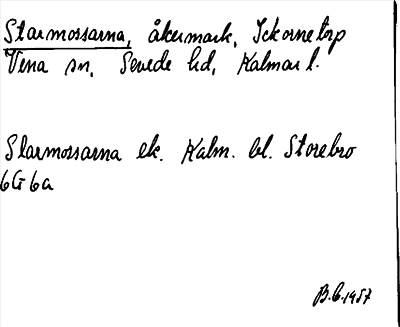 Starmossarna, åkermark, Ickornetorp
Vena sn, Sevede hd, Kalmar l.
Starmossarna ek. Kalm. bl. Storebro
6G 6a
B.C. 1957